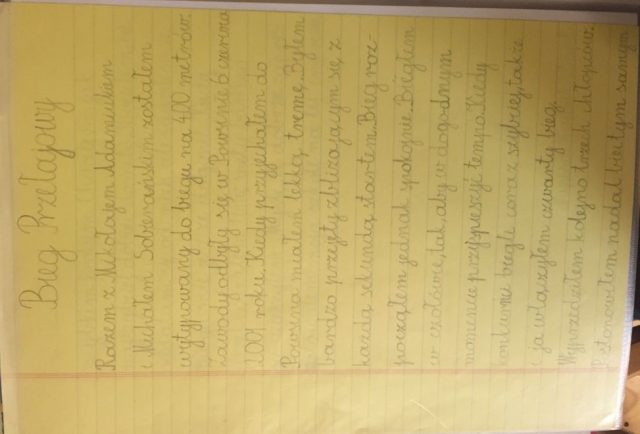 Bieg Przełajowy
Razem z Mikołajem Adamczukiem
i Michałem Soberańskim zostałem
wytypowany do biegu na 400 metrów.
Zawody odbyły się w Powsinie 6 czerwca
2001 roku. Kiedy przyjechałem do
Powsina miałem lekką tremę. Byłem
bardzo przejęty zbliżającym się z
każdą sekundą startem. Bieg roz-
począłem jednak spokojnie. Biegłem
w czołówce, tak aby w dogodnym
momencie przyspieszyć tempo. Kiedy
konkurenci biegli coraz szybciej, także
i ja włączyłem czwarty bieg.
Wyprzedziłem kolejno trzech chłopców.
Postanowiłem nadal biec tym samym